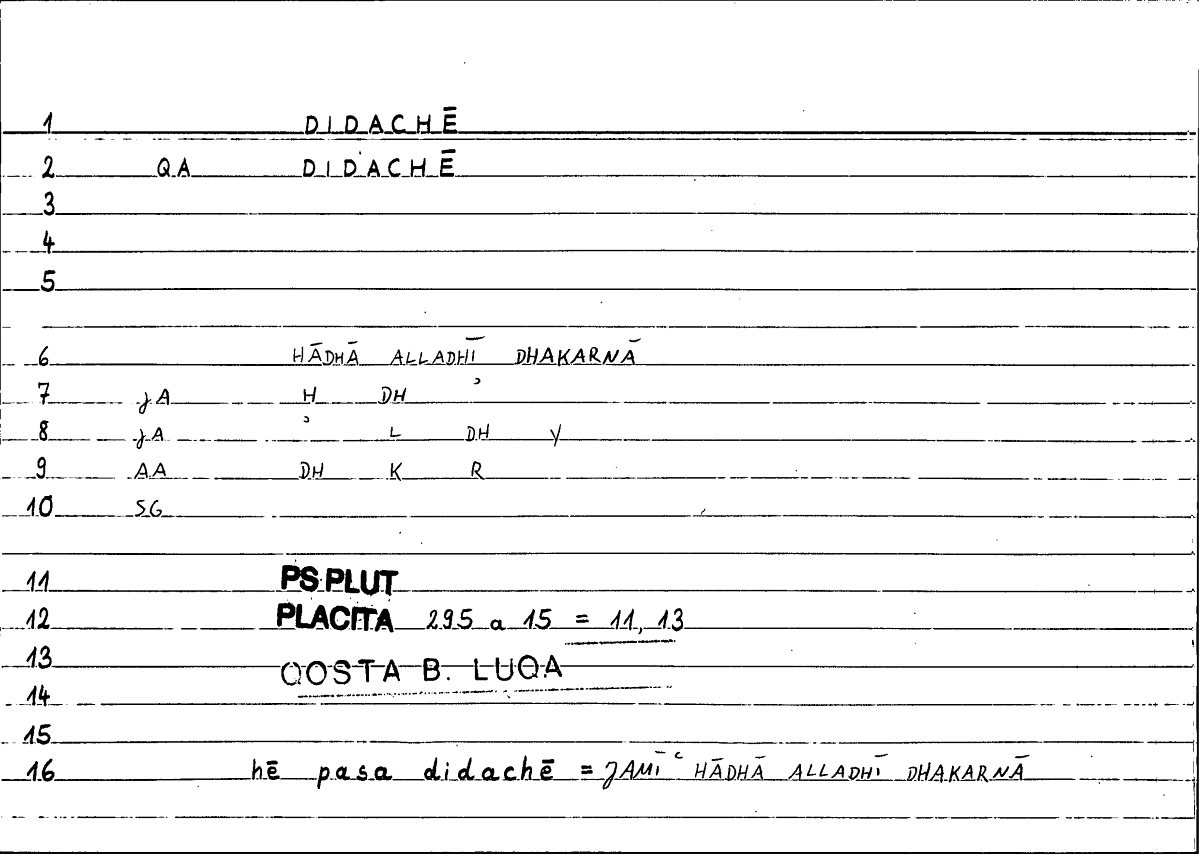 1 DIDACHĒ
2 QA DIDACHĒ
3
4
5
6 HĀDHĀ ALLADHĪ DHAKARNĀ
7 JA H DH ʾ
8 JA ʾ L DH Y
9 AA DH K R
10 SG
11 PS.PLUT
12 PLACITA 295 a 15 = 11, 13
13 QOSTA B. LUQA
14
15
16 hē pasa didachē = JAMĪʿ HĀDHĀ ALLADHĪ DHAKARNĀ